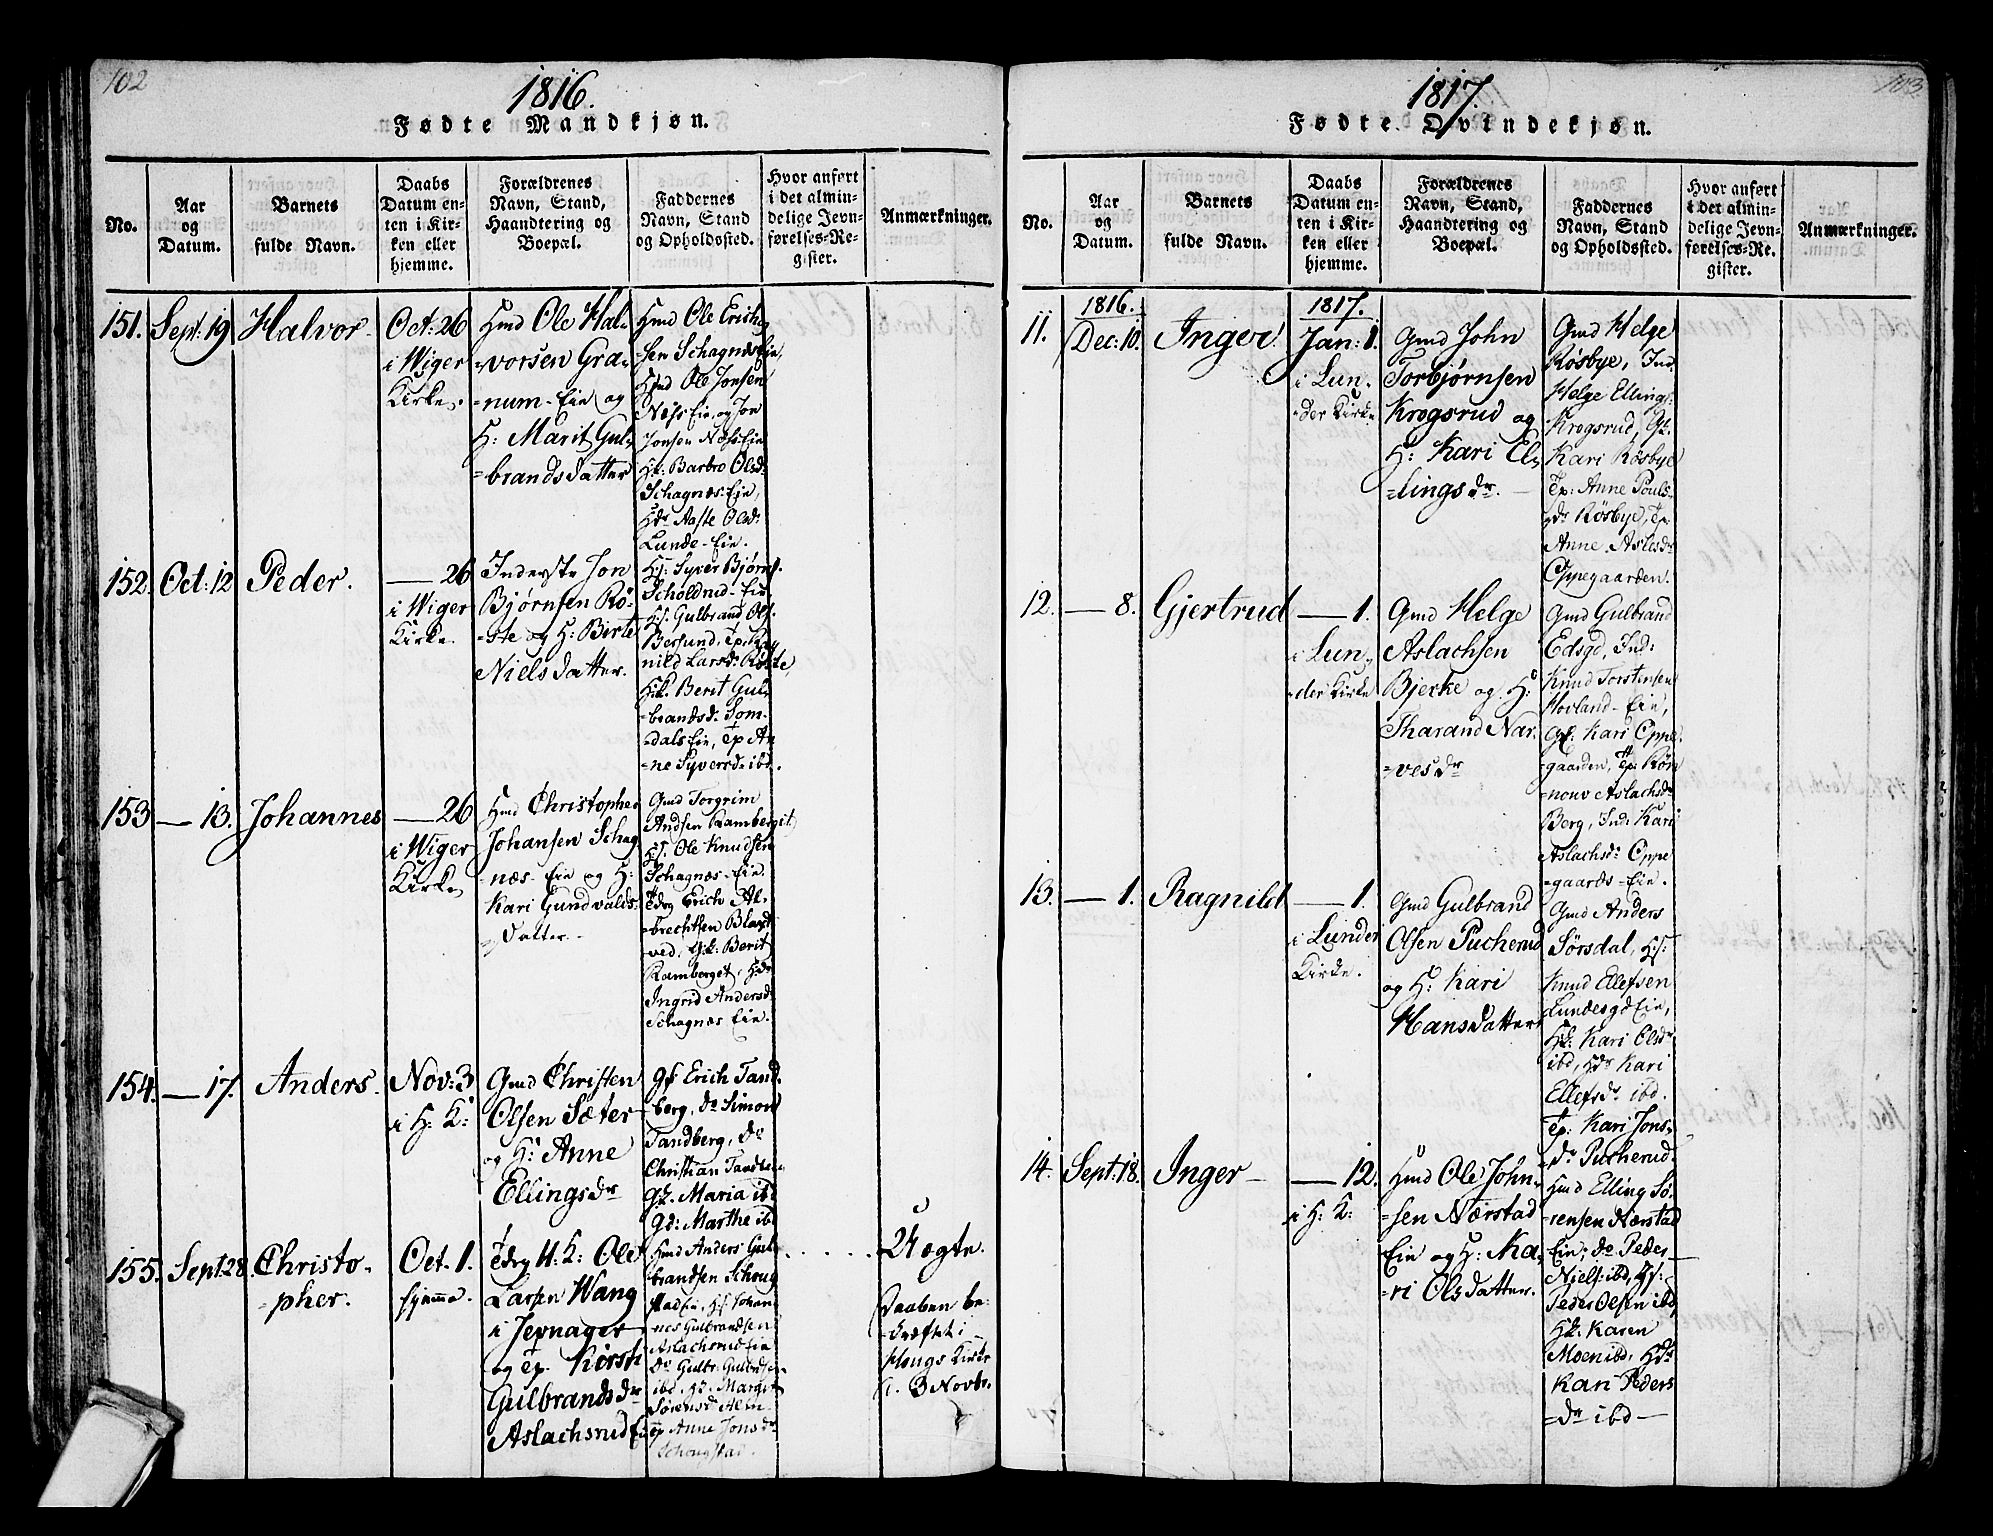 102
1816.
Fødte Mandkjøn.
No.
Aar
og
Datum.
Barnets
fulde Navn.
Daabs
Datum en-
ten i Kir-
ken eller
hjemme.
Forældrenes
Navn, Stand,
Haandtering og
Boepæl.
Faddernes
Navn, Stand
og Opholdsted.
Hvor anført
i det almin-
delige Jevn-
førelses-Re-
gister.
Anmærkninger.
151. Sept: 19 Halvor
Oct: 26
i Wiger
Kirke.
Hmd Ole Hal-
vorsen Gra-
num-Eie og
H: Marit Gul-
brandsdatter
Hmd Ole Erich-
sen Schagnæs Eie,
Hmd Ole Jonsen
Næss Eie, og Jon
Jonsen Næss Eie
Hk: Barbro Olsd:
Schagnæs-Eie,
Hdr Aaste Olsd:
Lunde-Eie.
152. Oct: 12 Peder.
— 26
i Wiger
Kirke.
Inderste Jon
Bjørnsen Rö-
ste og H: Birte
Nielsdatter.
Hs: Syver Bjørns.
Scholdrud-Eie
Hs. Gulbrand Ols.
Bersund, Tp: Rag-
nild Larsd: Röste,
Hk. Berit Gul-
brandsd. Som-
dals Eie, Tp An-
ne Syversd: ibd.
153 — 13. Johannes
— 26
i Wiger
Kirke
Hmd Christopher
Johansen Schag
næs-Eie og H:
Kari Gundvalds-
datter.
Gmd Torgrim
Andsen Ramberget
Hs. Ole Knudsen
Schagnæs-Eie.
Tdrg Erich Al-
brechtsen Blaa
ved, Gk: Berit
Ramberget, Hdr
Ingrid Andersd:
Schagnæs Eie.
154. — 17. Anders.
Nov: 3
i H: K:
Gmd Christen
Olsen Sæter
og H: Anne
Ellingsdr
Gs Erich Tand-
berg, do Simon
Tandberg, do
Christian Tandberg
Gk. Maria ibd
Gd: Marthe ibd
155. Sept: 28. Christo-
pher.
Oct. 1.
hjemme.
Tdrg U. K: Ole
Larsen Wang
i Jevnager
og Tp. Kirsti
Gulbrandsdr
Aslachsrud Ei
Hmd Anders Gul-
brandsen Schoug
stad Eie, Hs. Johan-
nes Gulbrandsen
Aslachsrud Eie
do Gulbr: Gulbrdsen
ibd. Gd. Margit
Sørensdr
Tp Anne Jonsdr
Schougstad.
Uægte.
Daaben be-
kræftet i
Hougs Kirke
d. 3 Novbr.
103
1817.
Fødte Qvindekjøn.
No.
Aar
og
Datum.
Barnets
fulde Navn.
Daabs
Datum en-
ten i Kir-
ken eller
hjemme.
Forældrenes
Navn, Stand,
Haandtering og
Boepæl.
Faddernes
Navn, Stand
og Opholdssted.
Hvor anført
i det almin-
delige Jevn-
førelses-Re-
gister.
Anmærkninger.
11. 1816.
Dec: 10. Inger
1817.
Jan: 1.
i Lun-
der Kirke
Gmd John
Torbjørnsen
Krogsrud og
H: Kari El-
lingsdr. —
Gmd Helge
Rösbye, Ind.
Helge Ellings:
Krogsrud, Gk.
Kari Rösbye
Tp: Anne Pouls-
dr Rösbye, Tp:
Anne Aslesdr
Oppegaarden.
12. — 8. Gjertrud
— 1.
i Lun-
der Kirke
Gmd Helge
Aslachsen
Bjerke og H:
Tharand Nar-
vesdr
Gmd Gulbrand
Edsgd, Ind:
Knud Torstensen
Hovland-Eie,
Gk. Kari Oppe-
gaarden, Tp: Røn
nouv Aslachsdr
Berg, Ind: Kari
Aslachsdr Oppe
gaards-Eie.
13. — 1. Ragnild
— 1.
i Lunder
Kirke.
Gmd Gulbrand
Olsen Pucherud
og H: Kari
Hansdatter
Gmd Anders
Sørsdal, Hs:
Knud Ellefsen
Lundesgd Eie,
Hk: Kari Olsdr
ibd, Hdr Kari
Ellefsdr ibd.
Tp: Kari Jons-
dr Pucherud.
14. Sept: 18. Inger
— 12.
i H: K:
Hmd Ole John-
sen Nærstad
Eie og H: Ma-
ri Olsdatter.
Hmd Elling Sø-
rensen Nærstad
Eie; do Peder
Niels: ibd, Hs:
Peder Olsen ibd
Hk. Karen
Moen ibd, Hdr
Kari Peders
dr ibd —